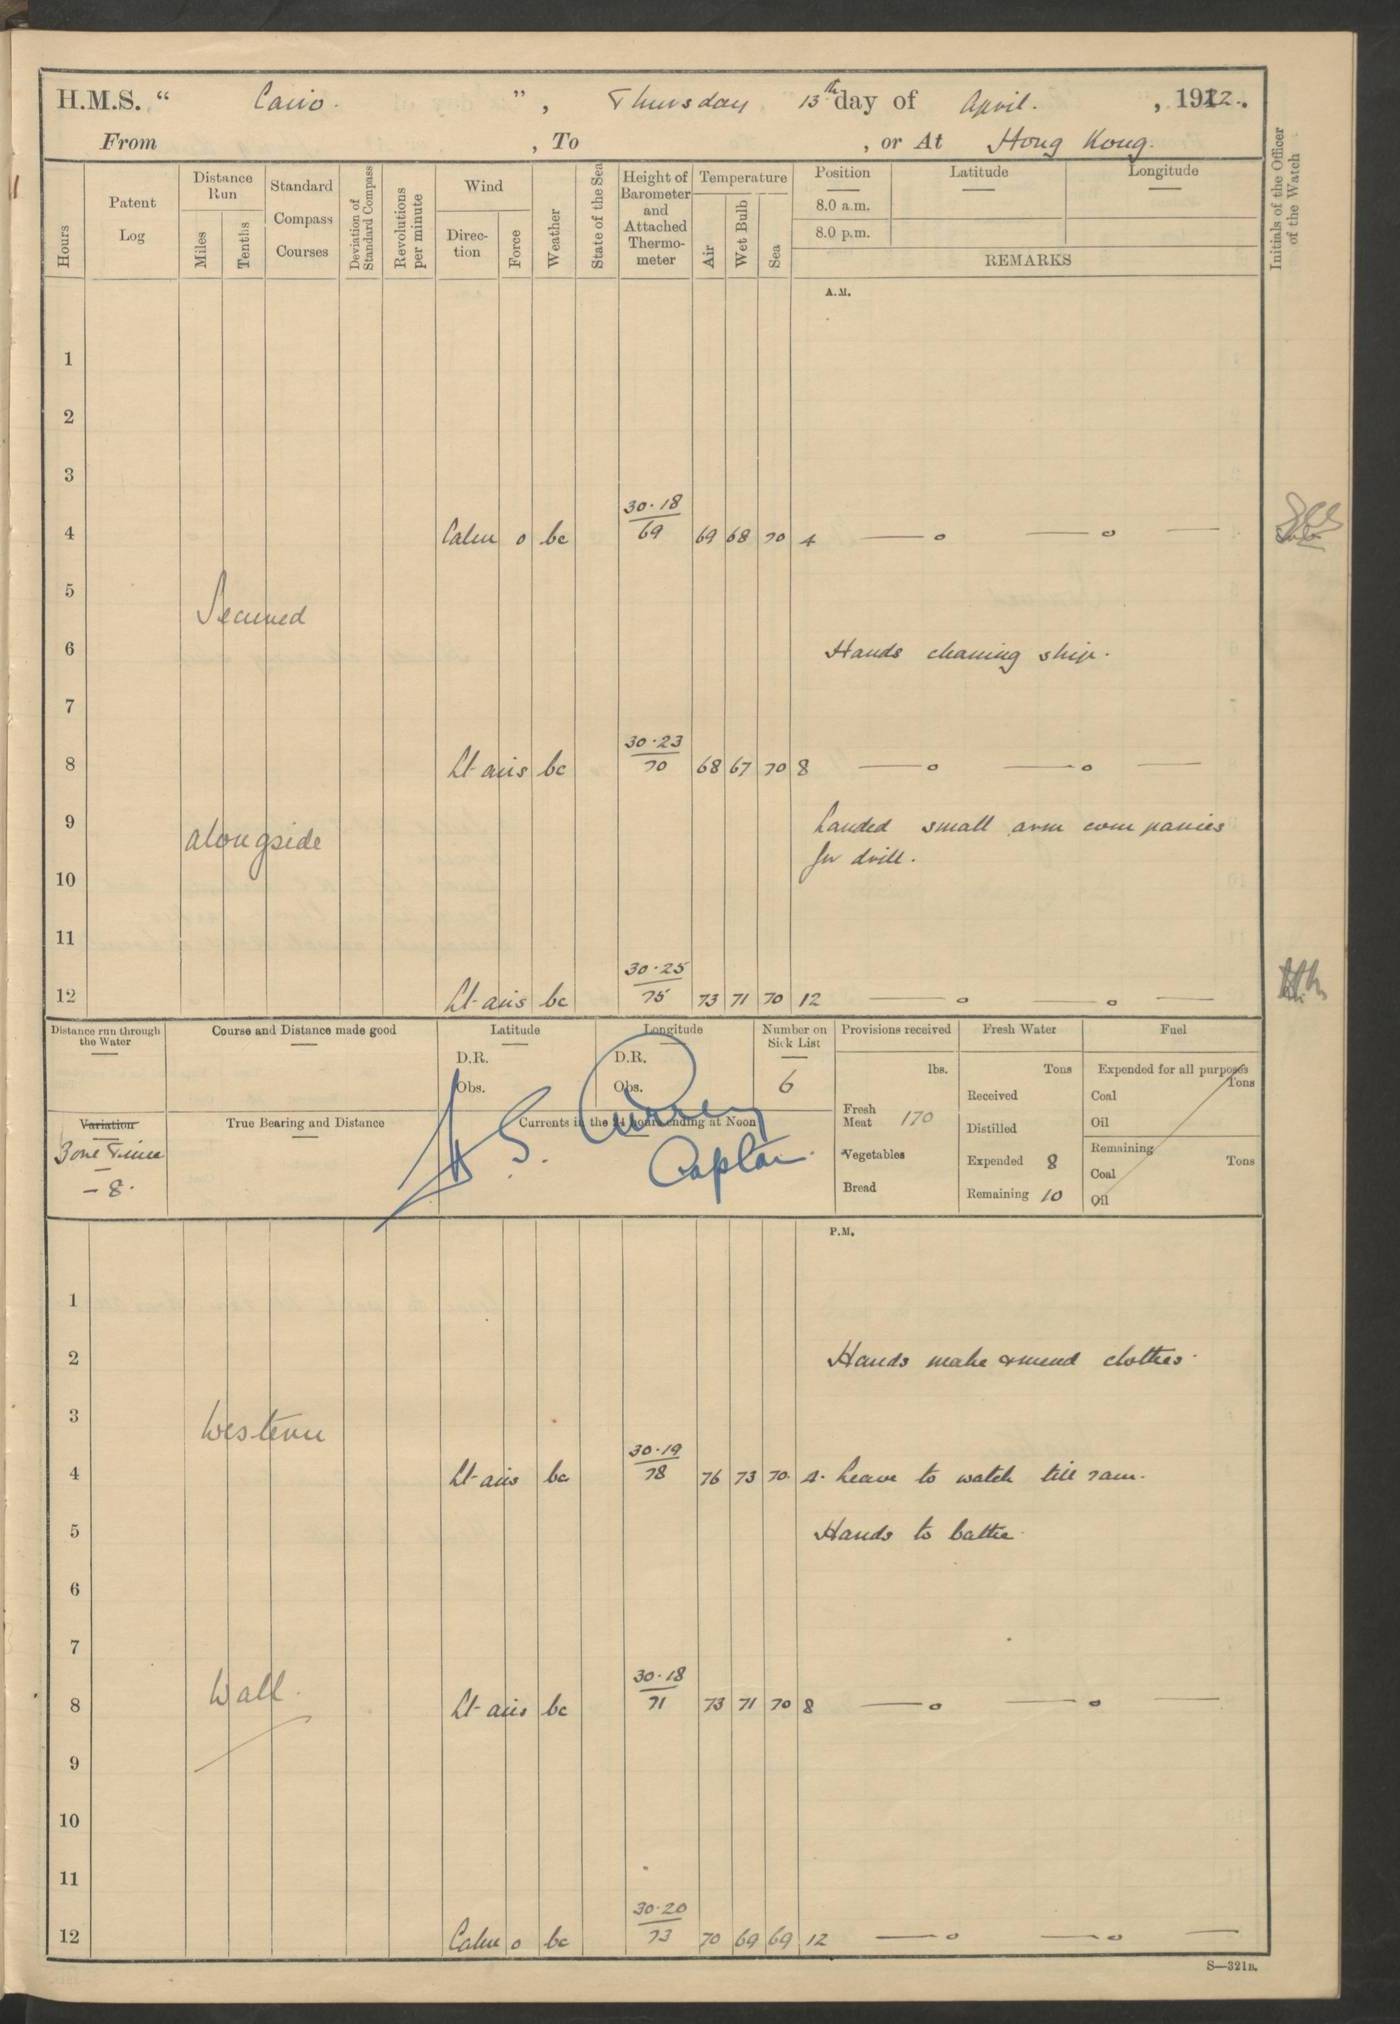 H.M.S. “ Cairo. ”, Thursday 13th day of April. , 1922.
From , To , or At Hong Kong.
Hours
Patent Log
Distance Run
Miles
Tenths
Standard Compass Courses
Deviation of Standard Compass
Revolutions per minute
Wind
Direction
Force
Weather
State of the Sea
Height of Barometer and Attached Thermometer
Temperature
Air
Wet Bulb
Sea
Position
8.0 a.m.
8.0 p.m.
Latitude
Longitude
REMARKS
Initials of the Officer of the Watch
A.M.
1
2
3
4 Calm 0 bc 30.18 69 69 68 70 4 — o — o —
5
Secured
6 Hands cleaning ship.
7
8 Lt airs bc 30.23 70 68 67 70 8 — o — o —
9 Landed small arm companies
alongside
for drill.
10
11
12 Lt airs bc 30.25 75 73 71 70 12 — o — o —
Distance run through the Water
Course and Distance made good
Latitude
D.R.
Obs.
Longitude
D.R.
Obs.
Number on Sick List
6
Variation
Zone Time
- 8.
True Bearing and Distance
Currents in the 24 hours ending at Noon
Captain.
Provisions received
lbs.
Fresh Meat 170
Vegetables
Bread
Fresh Water
Tons
Received
Distilled
Expended 8
Remaining 10
Fuel
Expended for all purposes
Tons
Coal
Oil
Remaining
Tons
Coal
Oil
P.M.
1
2 Hands make & mend clothes.
3
Western
4 Lt airs bc 30.19 78 76 73 70 4. Leave to watch till 7am.
5 Hands to bathe.
6
7
Wall.
8 Lt airs bc 30.18 71 73 71 70 8 — o — o —
9
10
11
12 Calm 0 bc 30.20 73 70 69 69 12 — o — o —
S—321B.